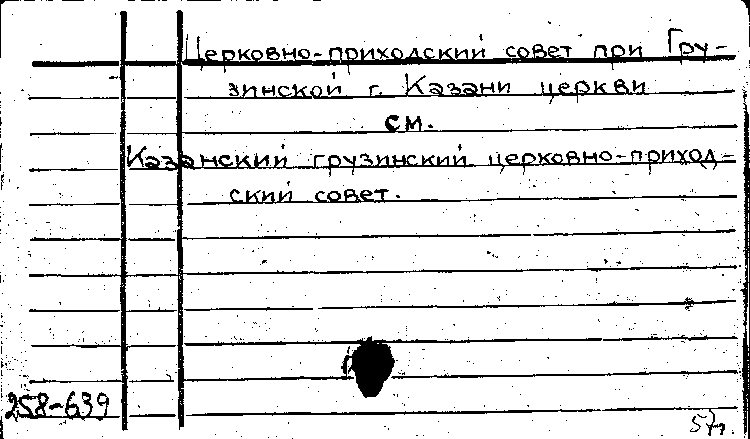 Церковно-приходский совет при Гру-
зинской г. Казани церкви
см.
Казанский грузинский церковно-приход-
ский совет.
258-639